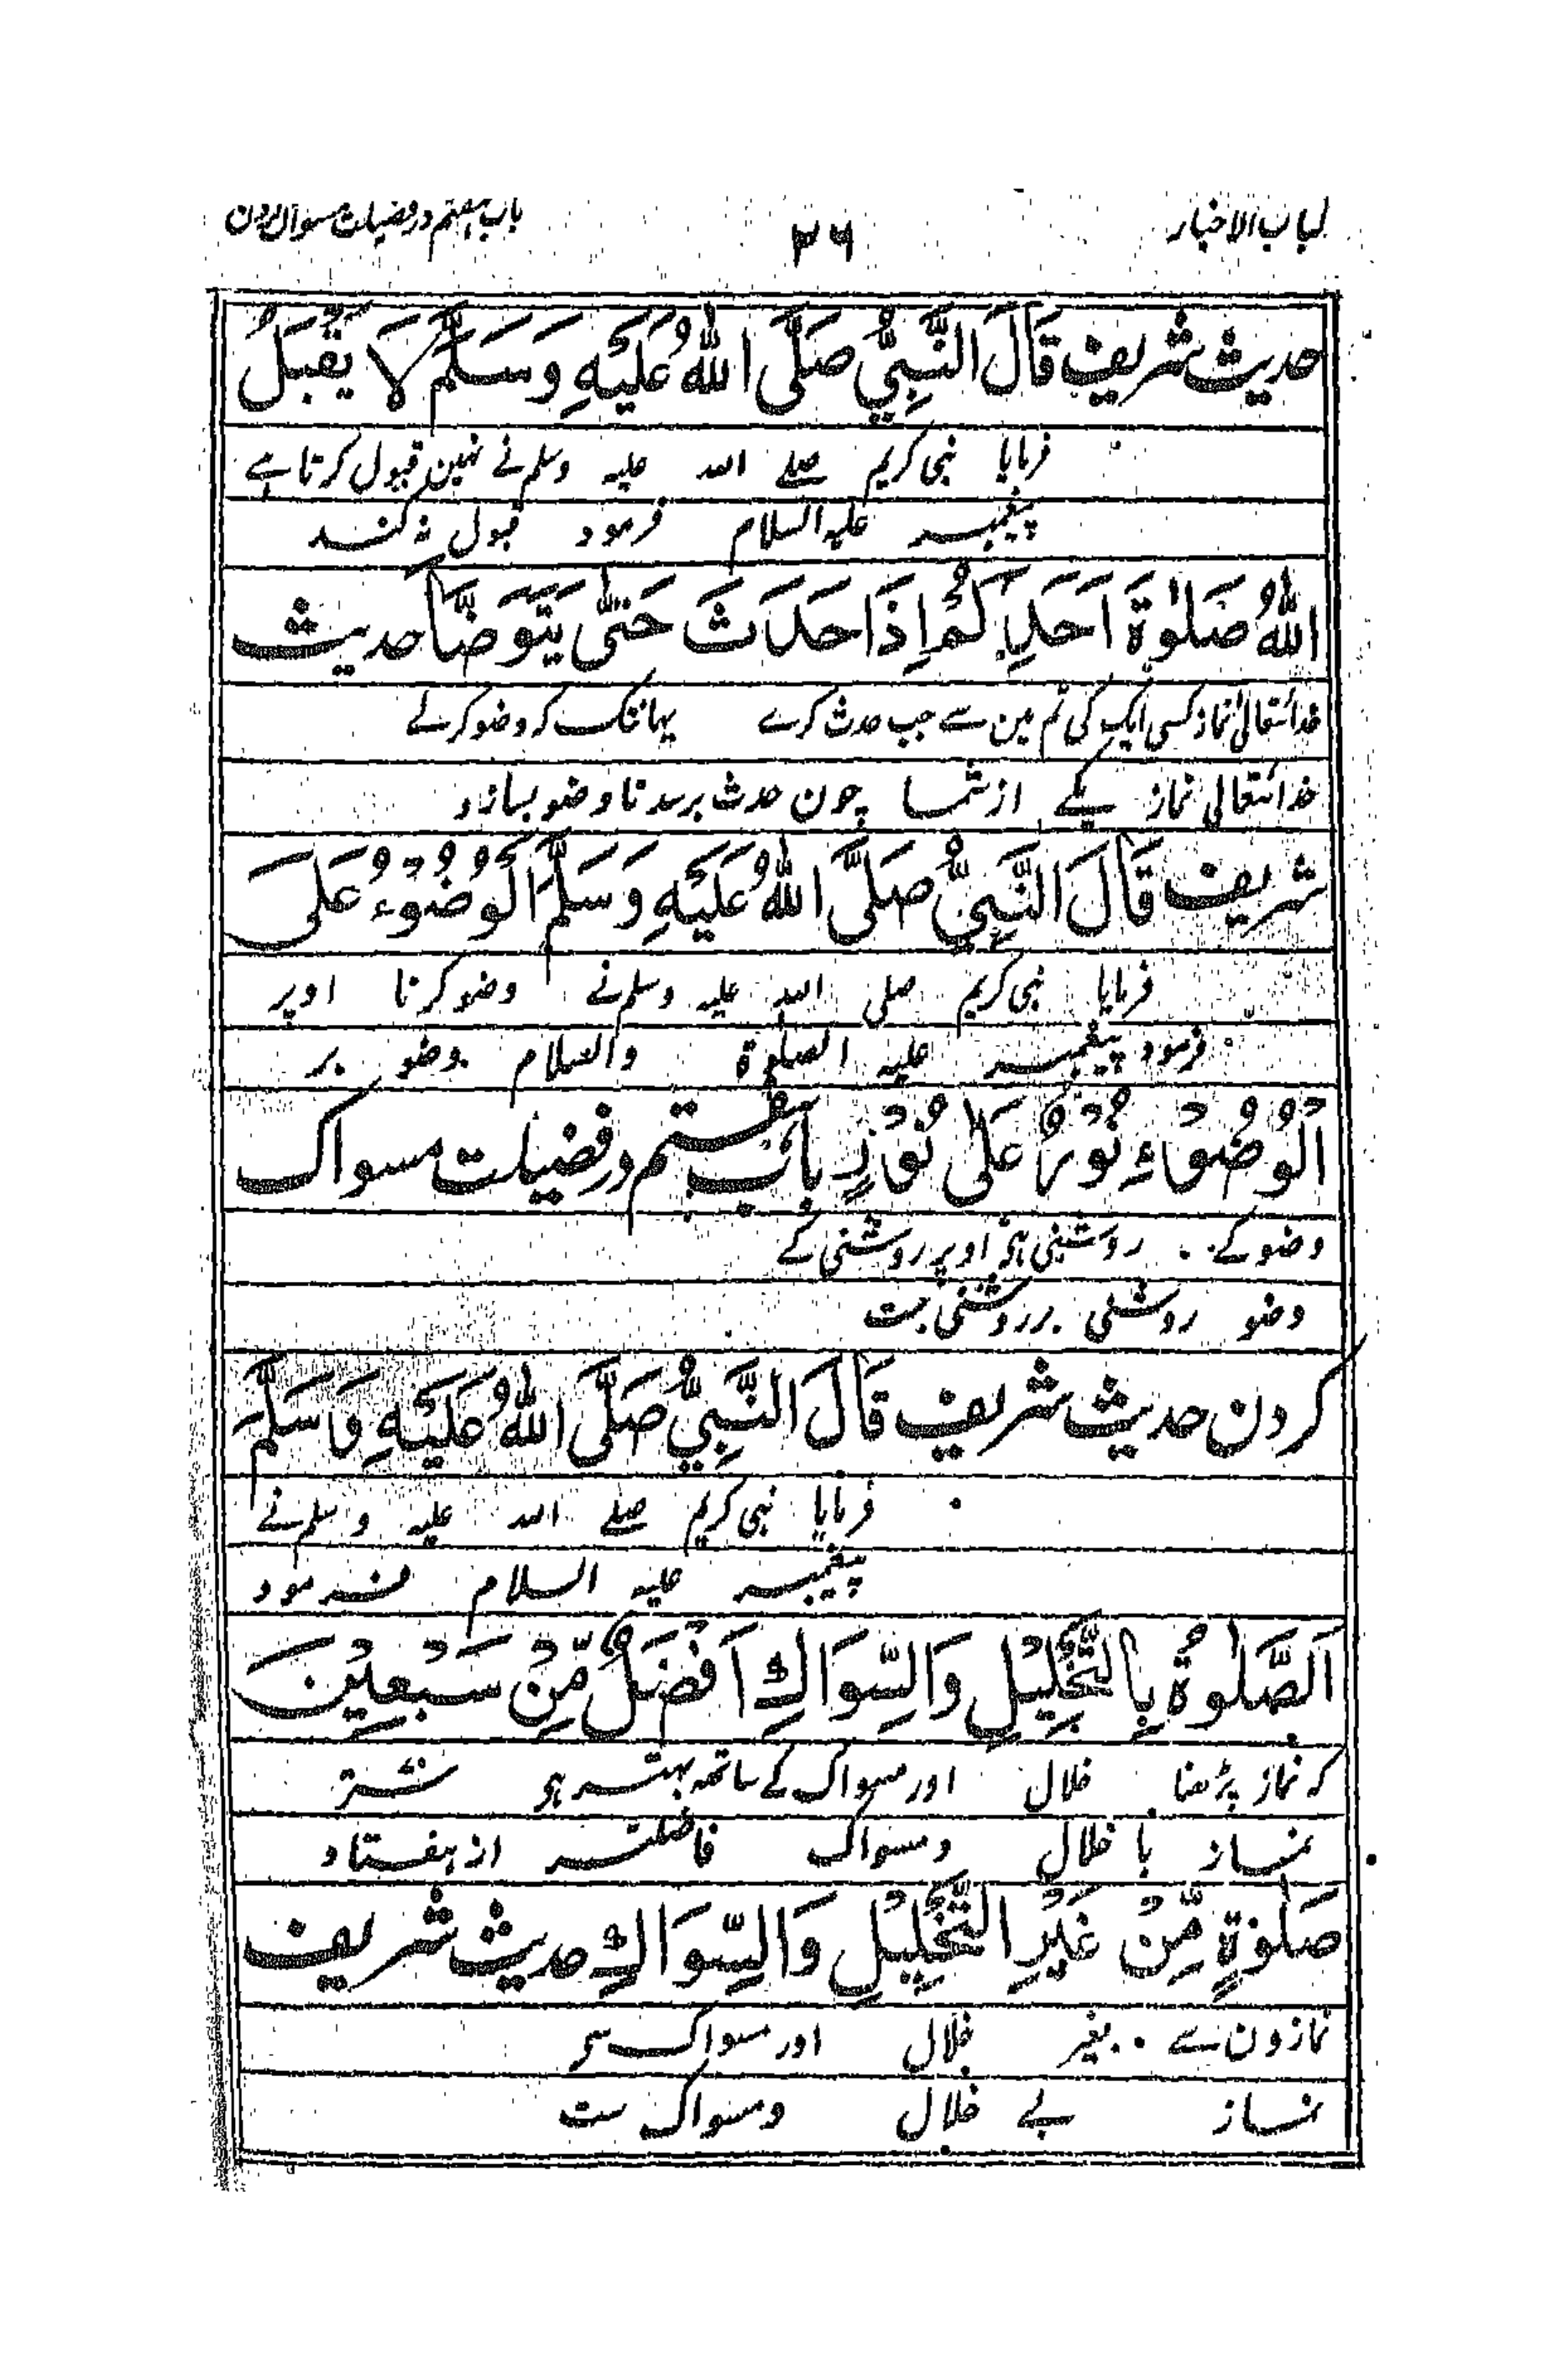 لباب الاخبار
۲۶
باب ہفتم در فضیلت مسواک کردن
حدیث شریف قَالَ النَّبِیُّ صَلَّی اللّٰهُ عَلَیْهِ وَسَلَّمَ لَا یَقْبَلُ
فرمایا نبی کریم صلے اللہ علیہ وسلم نے نہین قبول کرتا ہے
پیغمبر علیہ السلام فرمود قبول نہ کند
اللّٰهُ صَلٰوةَ اَحَدِکُمْ اِذَا حَدَثَ حَتّٰی یَتَوَضَّأَ حدیث
خدائتعالیٰ نماز کسی ایک کی تم مین سے جب حدث کرے یہانتک کہ وضو کرلے
خدائتعالی نماز یکے از شما چون حدث برسد تا وضو بسازد
شریف قَالَ النَّبِیُّ صَلَّی اللّٰهُ عَلَیْهِ وَسَلَّمَ اَلْوُضُوْءُ عَلَی
فرمایا نبی کریم صلی اللہ علیہ وسلم نے وضو کرنا اوپر
فرمود پیغمبر علیہ الصلوۃ والسلام وضو بر
الْوُضُوْءِ نُوْرٌ عَلٰی نُوْرٍ باب ہفتم در فضیلت مسواک
وضو کے روشنی ہے اوپر روشنی کے
وضو روشنی بر روشنی ہست
کردن حدیث شریف قَالَ النَّبِیُّ صَلَّی اللّٰهُ عَلَیْهِ وَسَلَّمَ
فرمایا نبی کریم صلے اللہ علیہ وسلم نے
پیغمبر علیہ السلام فرمود
اَلصَّلٰوةُ بِالتَّخْلِیْلِ وَالسِّوَاكِ اَفْضَلُ مِّنْ سَبْعِیْنَ
کہ نماز پڑھنا خلال اور مسواک کے ساتھ بہتر ہے ستر
نماز با خلال ومسواک فاضلتر از ہفتاد
صَلٰوةٍ مِّنْ غَیْرِ التَّخْلِیْلِ وَالسِّوَاكِ حدیث شریف
نمازون سے بغیر خلال اور مسواک سے
نماز بے خلال ومسواک ست